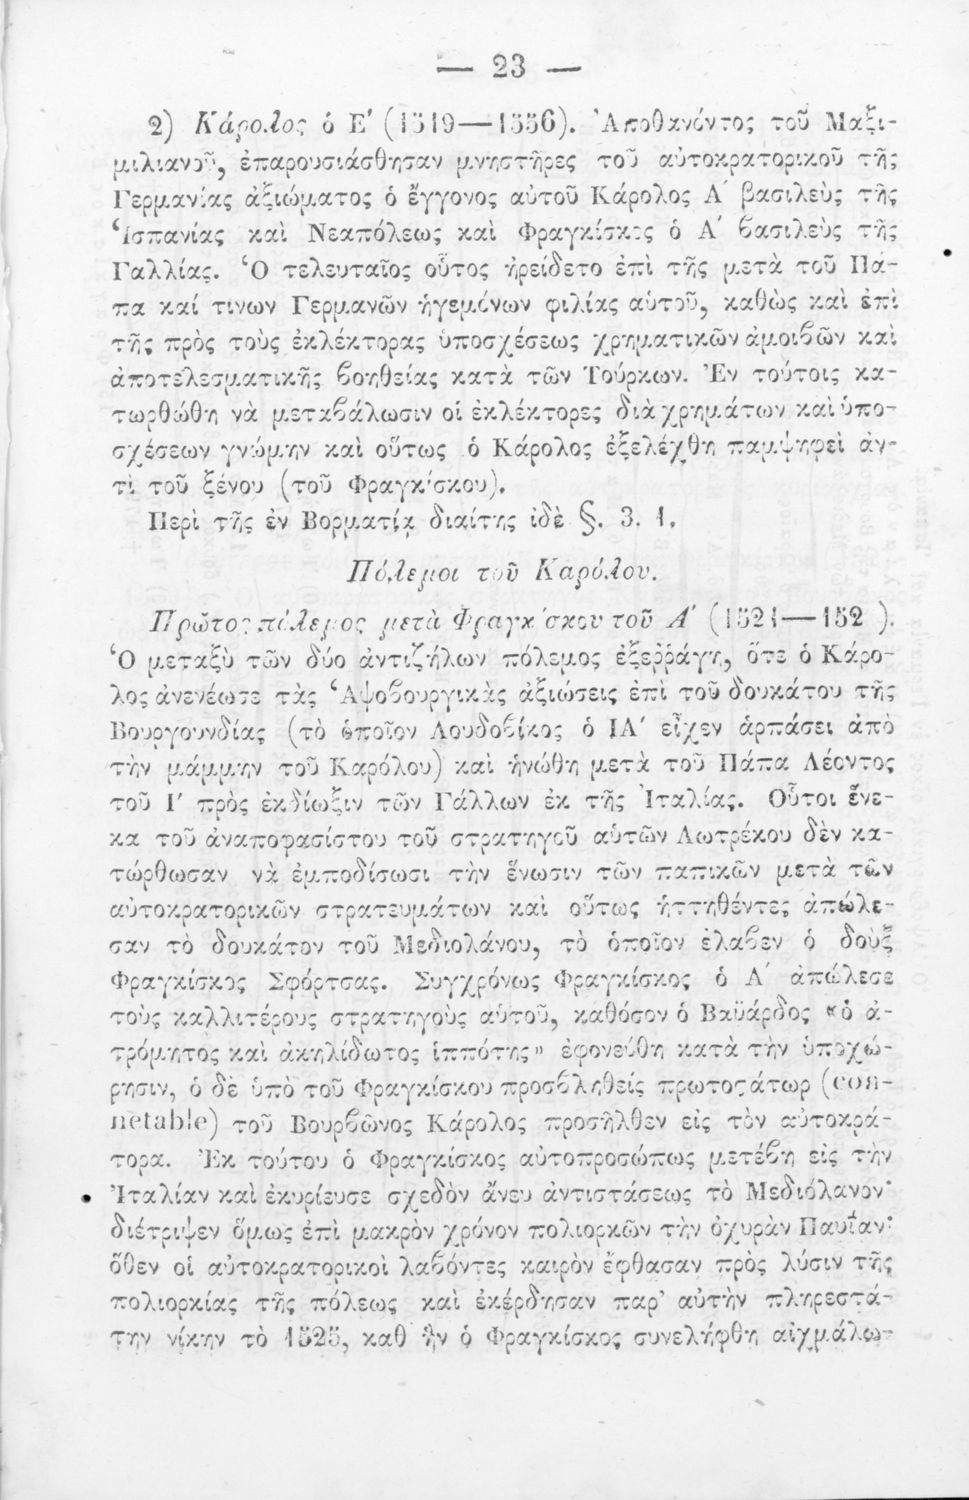 — 23 —
2) Κάρολος ὁ Ε΄ (1519—1556). Ἀποθανόντος τοῦ Μαξι-
μιλιανοῦ, ἐπαρουσιάσθησαν μνηστῆρες τοῦ αὐτοκρατορικοῦ τῆς
Γερμανίας ἀξιώματος ὁ ἔγγονος αὐτοῦ Κάρολος Α΄ βασιλεὺς τῆς
Ἱσπανίας καὶ Νεαπόλεως καὶ Φραγκίσκος ὁ Α΄ ϐασιλεὺς τῆς
Γαλλίας. Ὁ τελευταῖος οὗτος ἠρείδετο ἐπὶ τῆς μετὰ τοῦ Πά-
πα καί τινων Γερμανῶν ἡγεμόνων φιλίας αὑτοῦ, καθὼς καὶ ἐπὶ
τῆς πρὸς τοὺς ἐκλέκτορας ὑποσχέσεως χρηματικῶν ἀμοιϐῶν καὶ
ἀποτελεσματικῆς ϐοηθείας κατὰ τῶν Τούρκων. Ἐν τούτοις κα-
τωρθώθη νὰ μεταϐάλωσιν οἱ ἐκλέκτορες διὰ χρημάτων καὶ ὑπο-
σχέσεων γνώμην καὶ οὕτως ὁ Κάρολος ἐξελέχθη παμψηφεὶ ἀν-
τὶ τοῦ ξένου (τοῦ Φραγκίσκου).
Περὶ τῆς ἐν Βορματίᾳ διαίτης ἰδὲ §. 3. 1.
Πόλεμοι τοῦ Καρόλου.
Πρῶτος πόλεμος μετὰ Φραγκίσκου τοῦ Α΄ (1521—152 ).
Ὁ μεταξὺ τῶν δύο ἀντιζήλων πόλεμος ἐξεῤῥάγη, ὅτε ὁ Κάρο-
λος ἀνενέωσε τὰς Ἁψοϐουργικὰς ἀξιώσεις ἐπὶ τοῦ δουκάτου τῆς
Βουργουνδίας (τὸ ὁποῖον Λουδοϐῖκος ὁ ΙΑ΄ εἶχεν ἁρπάσει ἀπὸ
τὴν μάμμην τοῦ Καρόλου) καὶ ἡνώθη μετὰ τοῦ Πάπα Λέοντος
τοῦ Ι΄ πρὸς ἐκδίωξιν τῶν Γάλλων ἐκ τῆς Ἰταλίας. Οὗτοι ἕνε-
κα τοῦ ἀναποφασίστου τοῦ στρατηγοῦ αὑτῶν Λωτρέκου δὲν κα-
τώρθωσαν νὰ ἐμποδίσωσι τὴν ἕνωσιν τῶν παπικῶν μετὰ τῶν
αὐτοκρατορικῶν στρατευμάτων καὶ οὕτως ἡττηθέντες ἀπώλε-
σαν τὸ δουκάτον τοῦ Μεδιολάνου, τὸ ὁποῖον ἐλαϐεν ὁ δοὺξ
Φραγκίσκος Σφόρτσας. Συγχρόνως Φραγκίσκος ὁ Α΄ ἀπώλεσε
τοὺς καλλιτέρους στρατηγοὺς αὑτοῦ, καθόσον ὁ Βαϋάρδος «ὁ ἀ-
τρόμητος καὶ ἀκηλίδωτος ἱππότης» ἐφονεύθη κατὰ τὴν ὑποχώ-
ρησιν, ὁ δὲ ὑπὸ τοῦ Φραγκίσκου προσϐληθεὶς πρωτοστάτωρ (con-
netable) τοῦ Βουρϐῶνος Κάρολος προσῆλθεν εἰς τὸν αὐτοκρά-
τορα. Ἐκ τούτου ὁ Φραγκίσκος αὐτοπροσώπως μετέϐη εἰς τὴν
Ἰταλίαν καὶ ἐκυρίευσε σχεδὸν ἄνευ ἀντιστάσεως τὸ Μεδιόλανον·
διέτριψεν ὅμως ἐπὶ μακρὸν χρόνον πολιορκῶν τὴν ὀχυρὰν Παυΐαν·
ὅθεν οἱ αὐτοκρατορικοὶ λαϐόντες καιρὸν ἔφθασαν πρὸς λύσιν τῆς
πολιορκίας τῆς πόλεως καὶ ἐκέρδησαν παρ' αὐτὴν πληρεστά-
την νίκην τὸ 1525, καθ' ἣν ὁ Φραγκίσκος συνελήφθη αἰχμάλω-